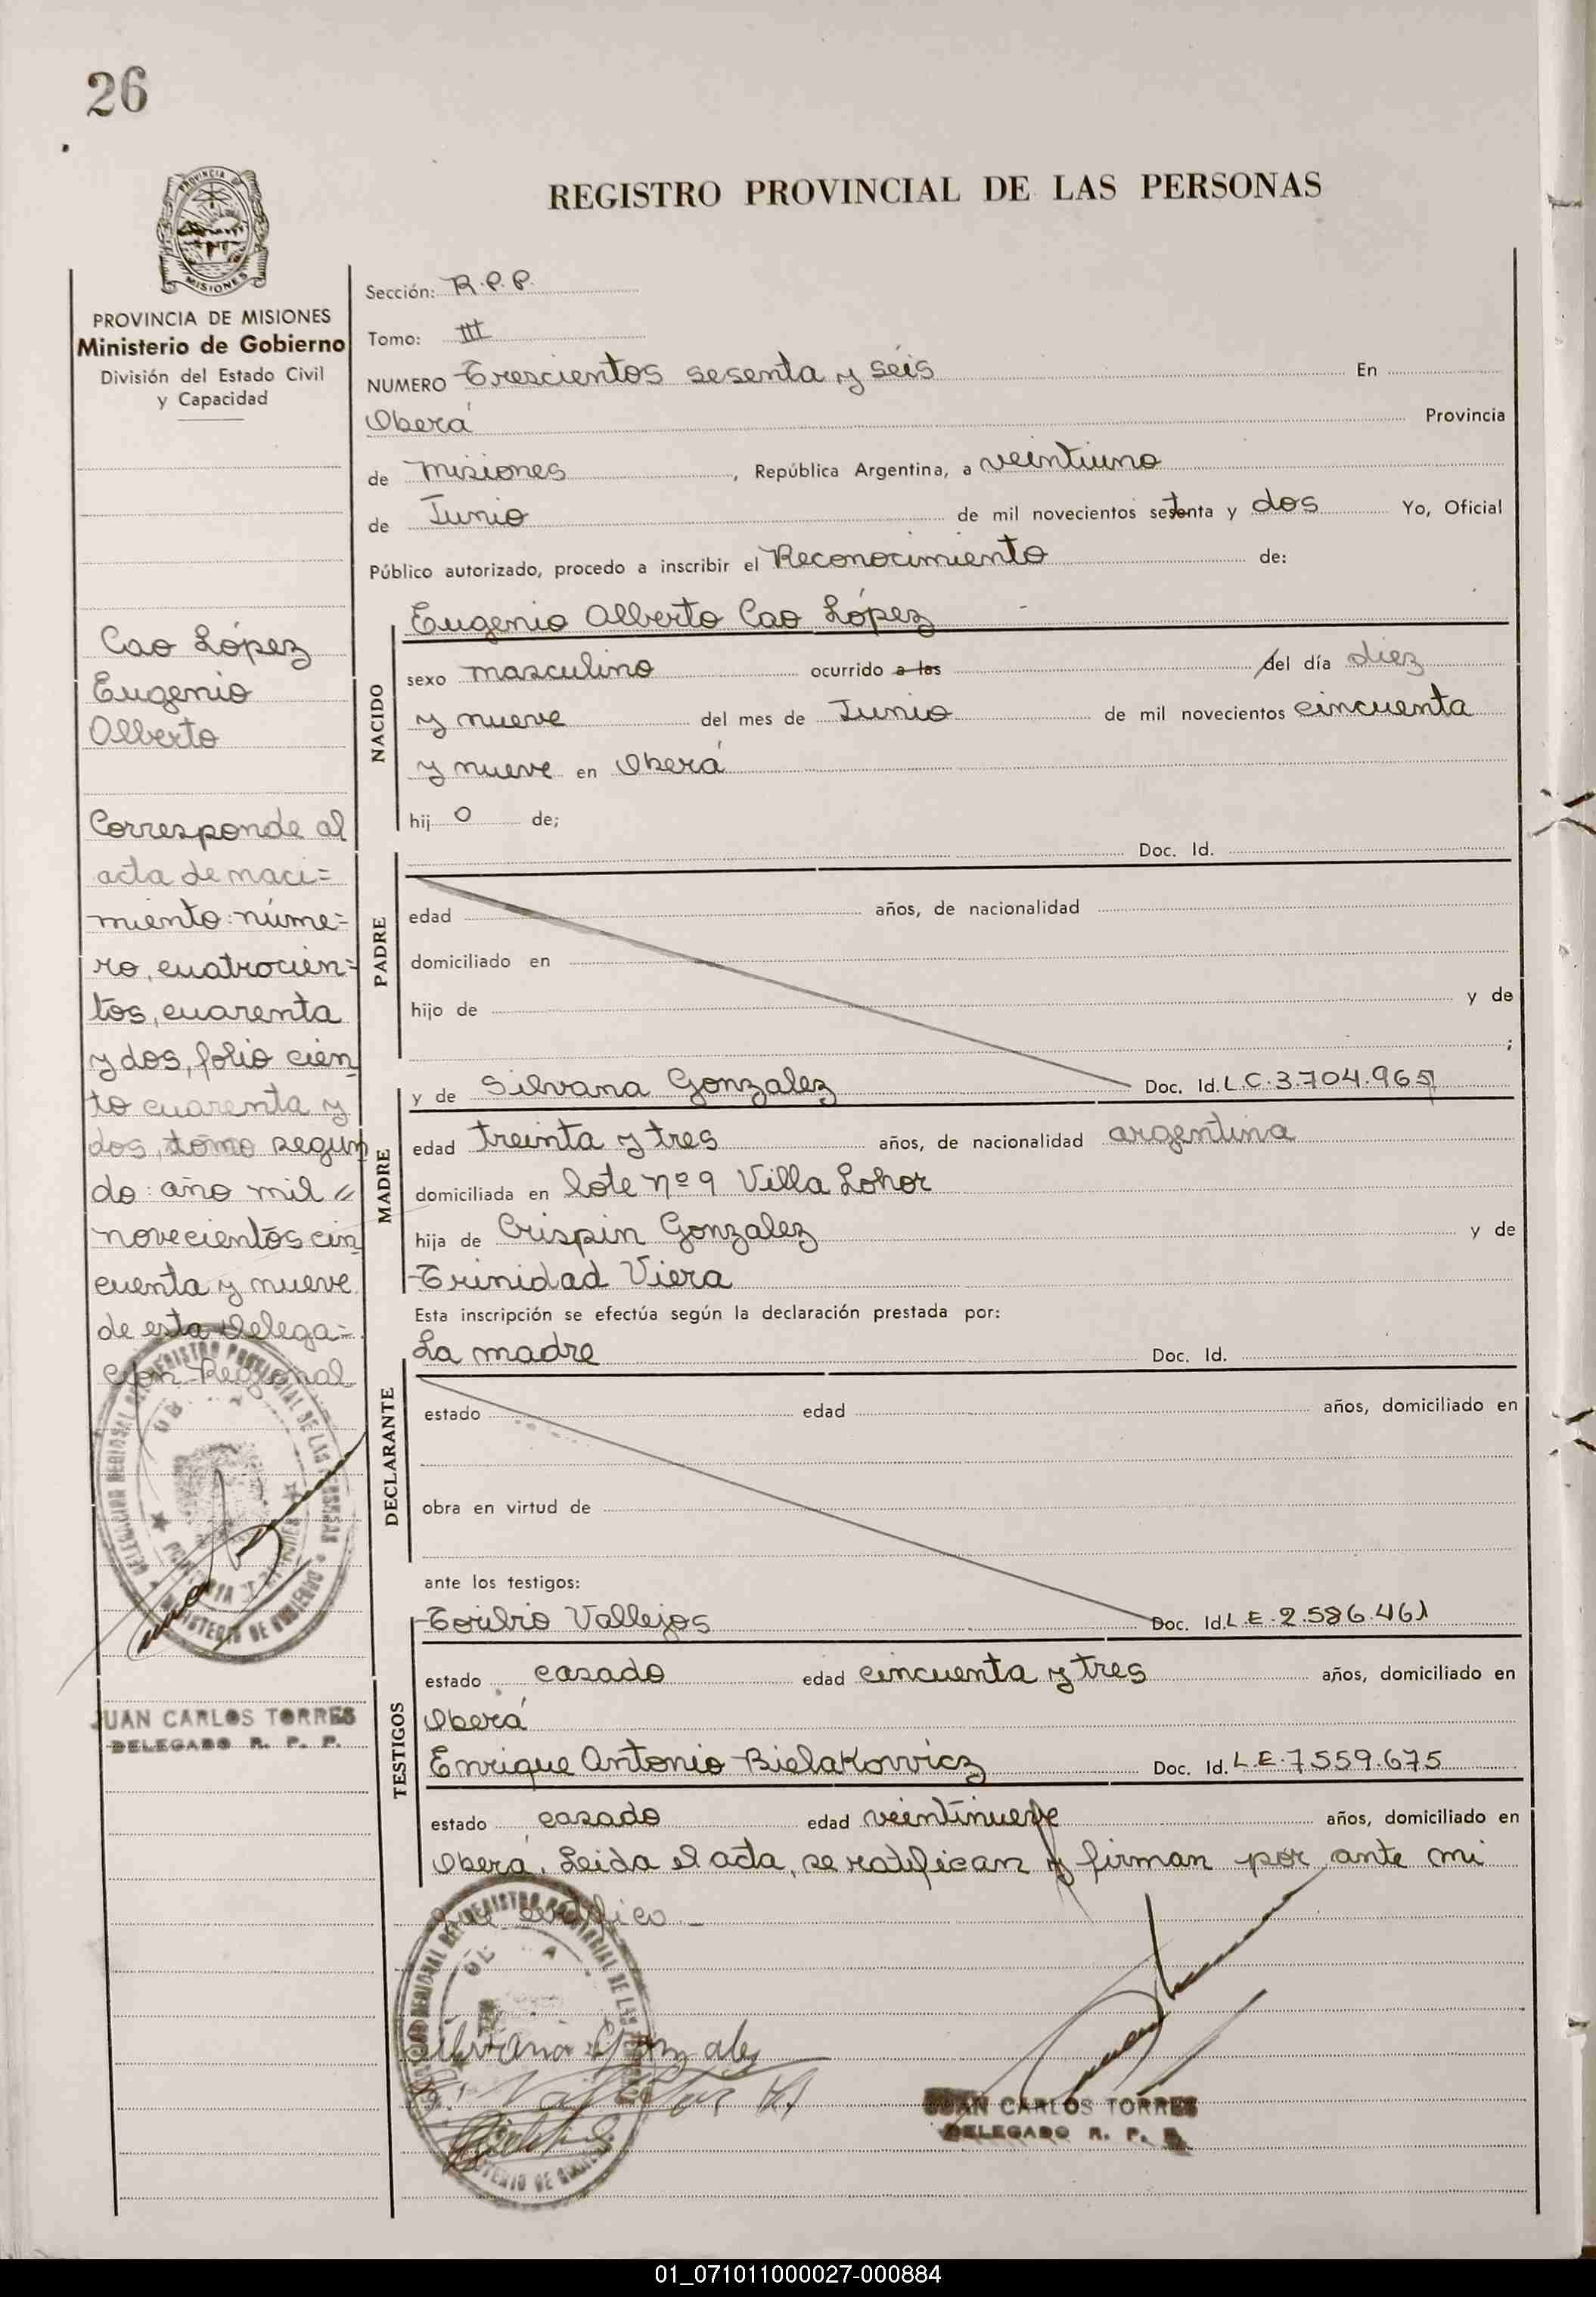 26
PROVINCIA
MISIONES
PROVINCIA DE MISIONES
Ministerio de Gobierno
División del Estado Civil
y Capacidad
Cao López
Eugenio
Alberto
Corresponde al
acta de naci=
miento: núme=
ro, cuatrocien=
tos, cuarenta
y dos, folio cien
to cuarenta y
dos, tomo segun
do: año mil //
novecientos cin
cuenta y nueve
de esta Delega=
ción Regional
JUAN CARLOS TORRES
DELEGADO R. P. P.
REGISTRO PROVINCIAL DE LAS PERSONAS
Sección: R.P.P.
Tomo: III
NUMERO Trescientos sesenta y seis En
Oberá Provincia
de Misiones, República Argentina, a veintiuno
de Junio de mil novecientos setenta y dos Yo, Oficial
Público autorizado, procedo a inscribir el Reconocimiento de:
NACIDO
Eugenio Alberto Cao López
sexo masculino ocurrido a las del día diez
y nueve del mes de Junio de mil novecientos cincuenta
y nueve en Oberá
hij o de;
PADRE
Doc. Id.
edad años, de nacionalidad
domiciliado en
hijo de y de
;
MADRE
y de Silvana Gonzalez Doc. Id. L.C.3.704.967
edad treinta y tres años, de nacionalidad argentina
domiciliada en lote nº 9 Villa Lohor
hija de Crispin Gonzalez y de
Trinidad Viera
Esta inscripción se efectúa según la declaración prestada por:
DECLARANTE
La madre Doc. Id.
estado edad años, domiciliado en
obra en virtud de
ante los testigos:
TESTIGOS
Toribio Vallejos Doc. Id. L.E.2.586.461
estado casado edad cincuenta y tres años, domiciliado en
Oberá
Enrique Antonio Bielakowicz Doc. Id. L.E.7.559.675
estado casado edad veintinueve años, domiciliado en
Oberá. Leida el acta, se ratifican y firman por ante mi
que certifico._
Silvana Gonzalez
JUAN CARLOS TORRES
DELEGADO R. P. P.
01_071011000027-000884